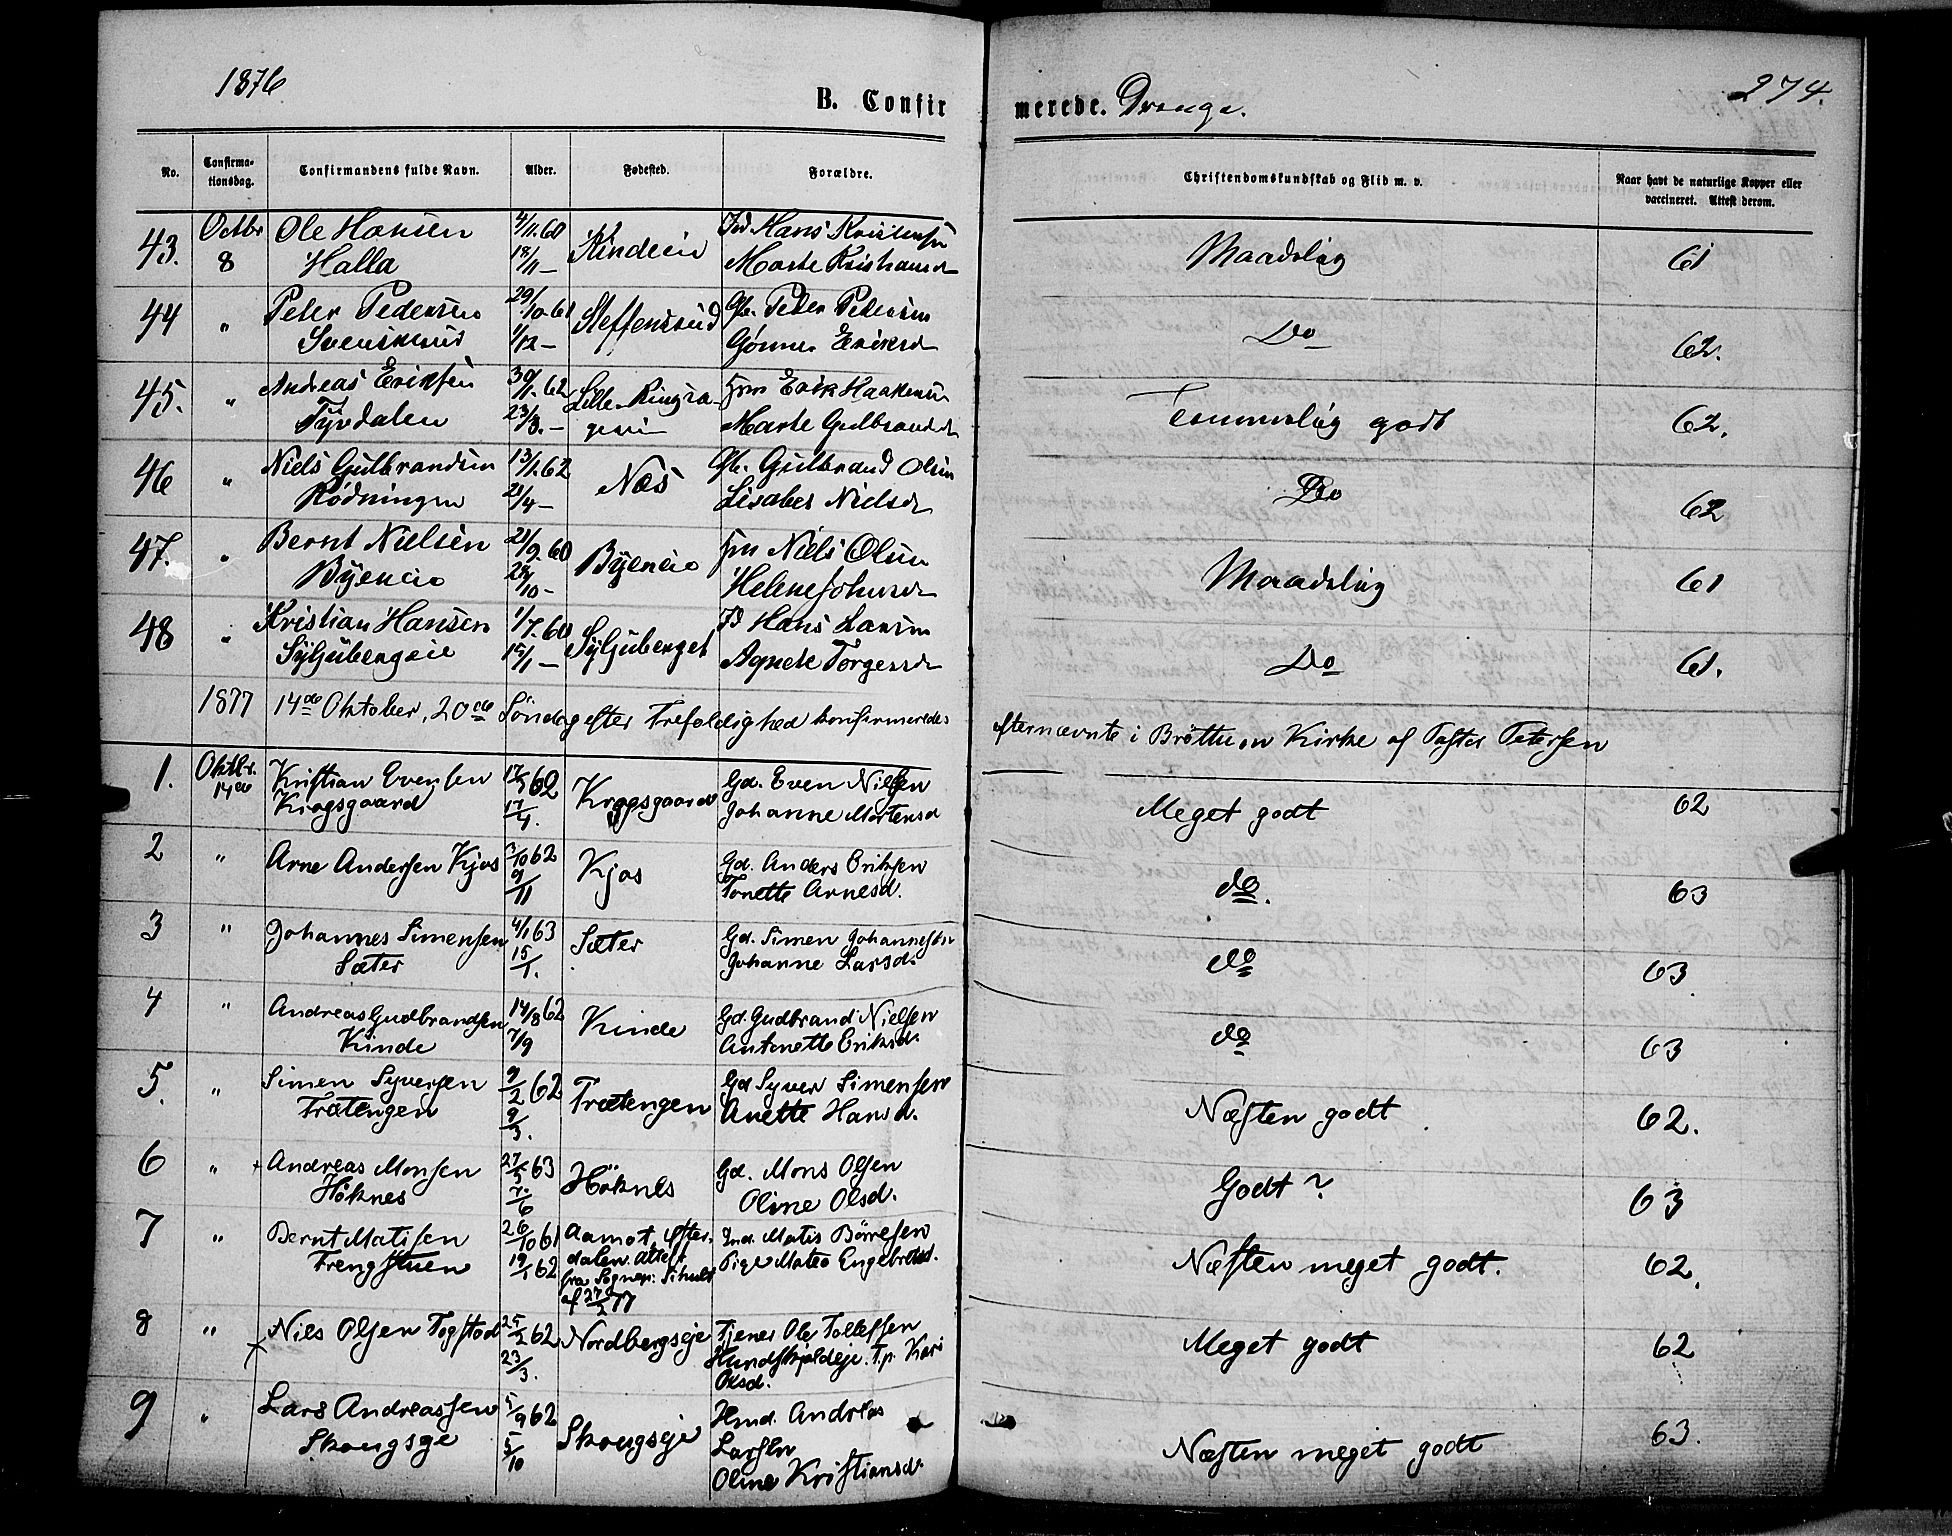 1876
B. Confirmerede. Drenge.
274.
No. Confirmationsdag. Confirmandens fulde Navn. Alder. Fødested. Forældre. Christendomskundskab og Flid m. v. Naar havt de naturlige Kopper eller vaccineret. Attest derom.
43. Octbr 8 Ole Hansen Halla 4/11.60 18/11 — Kindeie Hans Kristensen Marte Kristiansd Maadelig 61
44 " Peter Pedersen 29/10.61 1/12 — Steffensrud Peder Pedersen Gønner Eriksd Do 62.
45. " Andreas Eriksen Tyvdalen 30/1.62 23/3. — Lille-Ringsageri Hm Erik Haakensen Marte Gulbrandsd Temmelig godt 62.
46 " Niels Gulbrandsen Rødningen 13/1.62 21/4 — Næs Gulbrand Olsen Lisabet Nielsd Do 62
47. " Bernt Nielsen Byeneie 21/9.60 28/10 — Byeneie Hm Niels Olsen Helene Johnsd Maadelig 61
48 " Kristian Hansen Syljubergeie 1/7.60 15/1 — Syljuberget Hans Larsen Agnete Torgersd Do 61.
1877 14de Oktober, 20de Søndag efter Trefoldighed konfirmeredes efternævnte i Brøttum Kirke af Pastor Petersen
1. Oktbr. 14de Kristian Evensen Kragsgaard 17/3 62 17/4. Kragsgaard Gd. Even Nielsen Johanne Mortensd Meget godt 62
2 " Arne Andersen Kjos 3/10 62 9/11 Kjos Gd. Anders Eriksen Tonette Arnesd. do. 63
3 " Johannes Simensen Sæter 4/1 63 15/1. Sæter Gd. Simen Johannesen Johanne Larsd. do 63
4 " Andreas Gudbrandsen Kinde 14/8 62 7/9 Kinde Gd. Gudbrand Nielsen Antonette Eriksd. do 63
5. " Simen Syversen Trætengen 9/2 62 9/3. Trætengen Gd Syver Simensen Anette Hansd. Næsten godt 62.
6 " Andreas Monsen Höknes 27/5 63 7/6 Höknes Gd. Mons Olsen Oline Olsd. Godt? 63
7 " Bernt Matisen Frengstuen 26/10 61 19/1 62 Aamot, Østerdalen. Attest fra Sognepr. Schult af 27/2 77 Ind. Matis Börresen Pige Matea Engebretsd. Næsten meget godt. 62.
8 " Niels Olsen Fogstad 25/2 62 23/3. Nordbergseje Tjener Ole Tollefsen Hundskjoldeje. T.p. Kari Olsd. Meget godt 62
9 " Lars Andreassen Skougseje 5/9 62 5/10 Skougseje Hmd. Andreas Larsen Oline Kristiansd. Næsten meget godt 63.